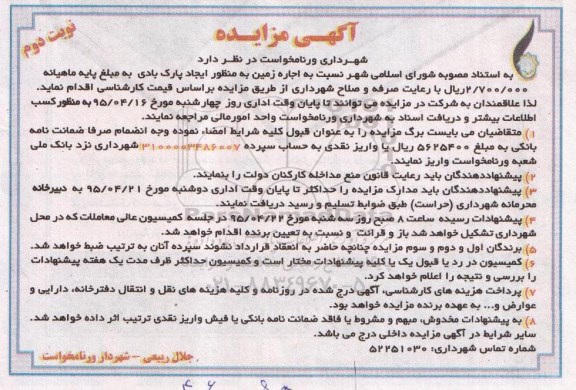 آگهی مزایده
نوبت دوم
شهرداری ورنامخواست در نظر دارد
به استناد مصوبه شورای اسلامی شهر نسبت به اجاره زمین به منظور ایجاد پارک بادی به مبلغ پایه ماهیانه
۲/۷۰۰/۰۰۰ریال با رعایت صرفه و صلاح شهرداری از طریق مزایده براساس قیمت کارشناسی اقدام نماید.
لذا علاقمندان به شرکت در مزایده می توانند تا پایان وقت اداری روز چهارشنبه مورخ ۹۵/۰۴/۱۶ به منظور کسب
اطلاعات بیشتر و دریافت اسناد به شهرداری ورنامخواست واحد امورمالی مراجعه نمایند.
۱) متقاضیان می بایست برگ مزایده را به عنوان قبول کلیه شرایط امضاء نموده وجه انضمام صرفا ضمانت نامه
بانکی به مبلغ ۵۶۲۵۴۰۰ ریال یا واریز نقدی به حساب سپرده ۳۱۰۰۰۰۳۴۸۶۰۰۷شهرداری نزد بانک ملی
شعبه ورنامخواست واریز نمایند.
۲) پیشنهاددهندگان باید رعایت قانون منع مداخله کارکنان دولت را بنمایند.
۳) پیشنهاددهندگان باید مدارک مزایده را حداکثر تا پایان وقت اداری دوشنبه مورخ ۹۵/۰۴/۲۱ به دبیرخانه
محرمانه شهرداری (حراست) طبق ضوابط تسلیم و رسید دریافت نمایند.
۴) پیشنهادات رسیده ساعت ۸ صبح روز سه شنبه مورخ ۹۵/۰۴/۲۲ در جلسه کمیسیون عالی معاملات که در محل
شهرداری تشکیل خواهد شد باز و قرائت و نسبت به تعیین برنده اقدام خواهد شد.
۵) برندگان اول و دوم و سوم مزایده چنانچه حاضر به انعقاد قرارداد نشوند سپرده آنان به ترتیب ضبط خواهد شد.
۶) کمیسیون در رد یا قبول یک یا کلیه پیشنهادات مختار است و کمیسیون حداکثر ظرف مدت یک هفته پیشنهادات
را بررسی و نتیجه را اعلام خواهد کرد.
۷) پرداخت هزینه های کارشناسی، آگهی درج شده در روزنامه و کلیه هزینه های نقل و انتقال دفترخانه، دارایی و
عوارض و... به عهده برنده مزایده خواهد بود.
۸) به پیشنهادات مخدوش، مبهم و مشروط یا فاقد ضمانت نامه بانکی یا فیش واریز نقدی ترتیب اثر داده خواهد شد.
سایر شرایط در آگهی مزایده داخلی درج می باشد.
شماره تماس شهرداری: ۵۲۲۵۱۰۳۰
جلال ربیعی - شهردار ورنامخواست